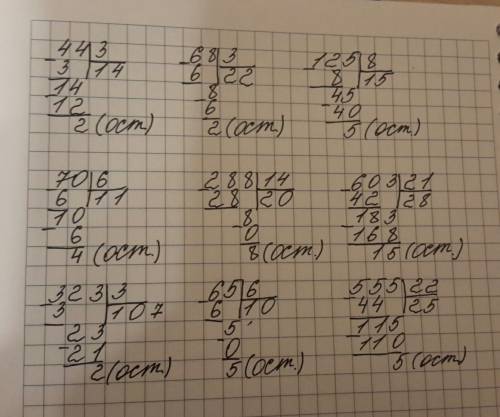 44 3
- 3 14
14
- 12
2 (ост.)
68 3
- 6 22
8
- 6
2 (ост.)
125 8
- 8 15
45
- 40
5 (ост.)
70 6
- 6 11
10
- 6
4 (ост.)
288 14
- 28 20
8
- 0
8 (ост.)
603 21
- 42 28
183
- 168
15 (ост.)
323 3
- 3 107
23
- 21
2 (ост.)
65 6
- 6 10
5
- 0
5 (ост.)
555 22
- 44 25
115
- 110
5 (ост.)